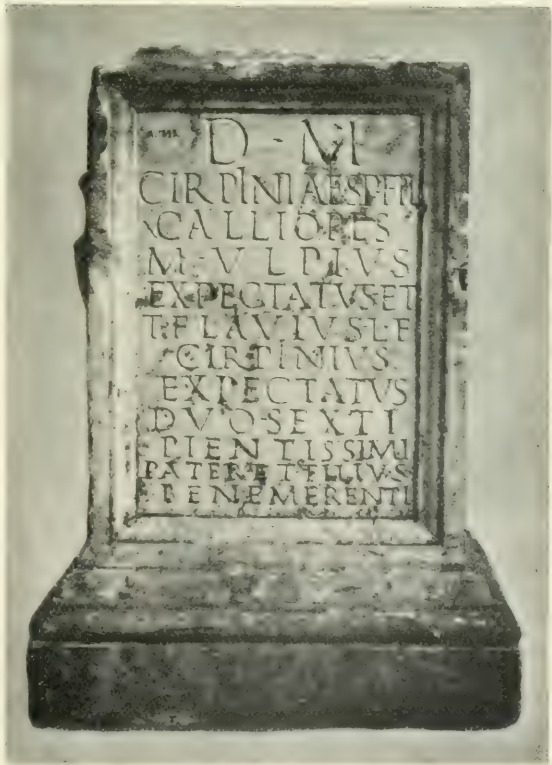 D · M
CIRPINIAE SP FIL
CALLIOPES
M · VLPIVS
EXPECTATVS ET
T · FLAVIVS L F
CIRPINIVS
EXPECTATVS
DVO SEXTI
PIENTISSIMI
PATER ET FILIVS
BENEMERENTI